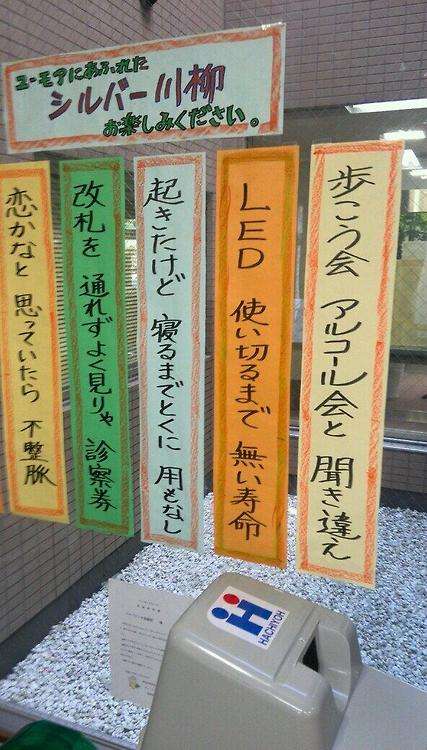 ユーモアにあふれた
シルバー川柳
お楽しみください。
歩こう会 アルコール会と 聞き違え
LED 使い切るまで 無い寿命
起きたけど 寝るまでとくに 用もなし
改札を 通れずよく見りゃ 診察券
恋かなと 思っていたら 不整脈
HACHIYOH